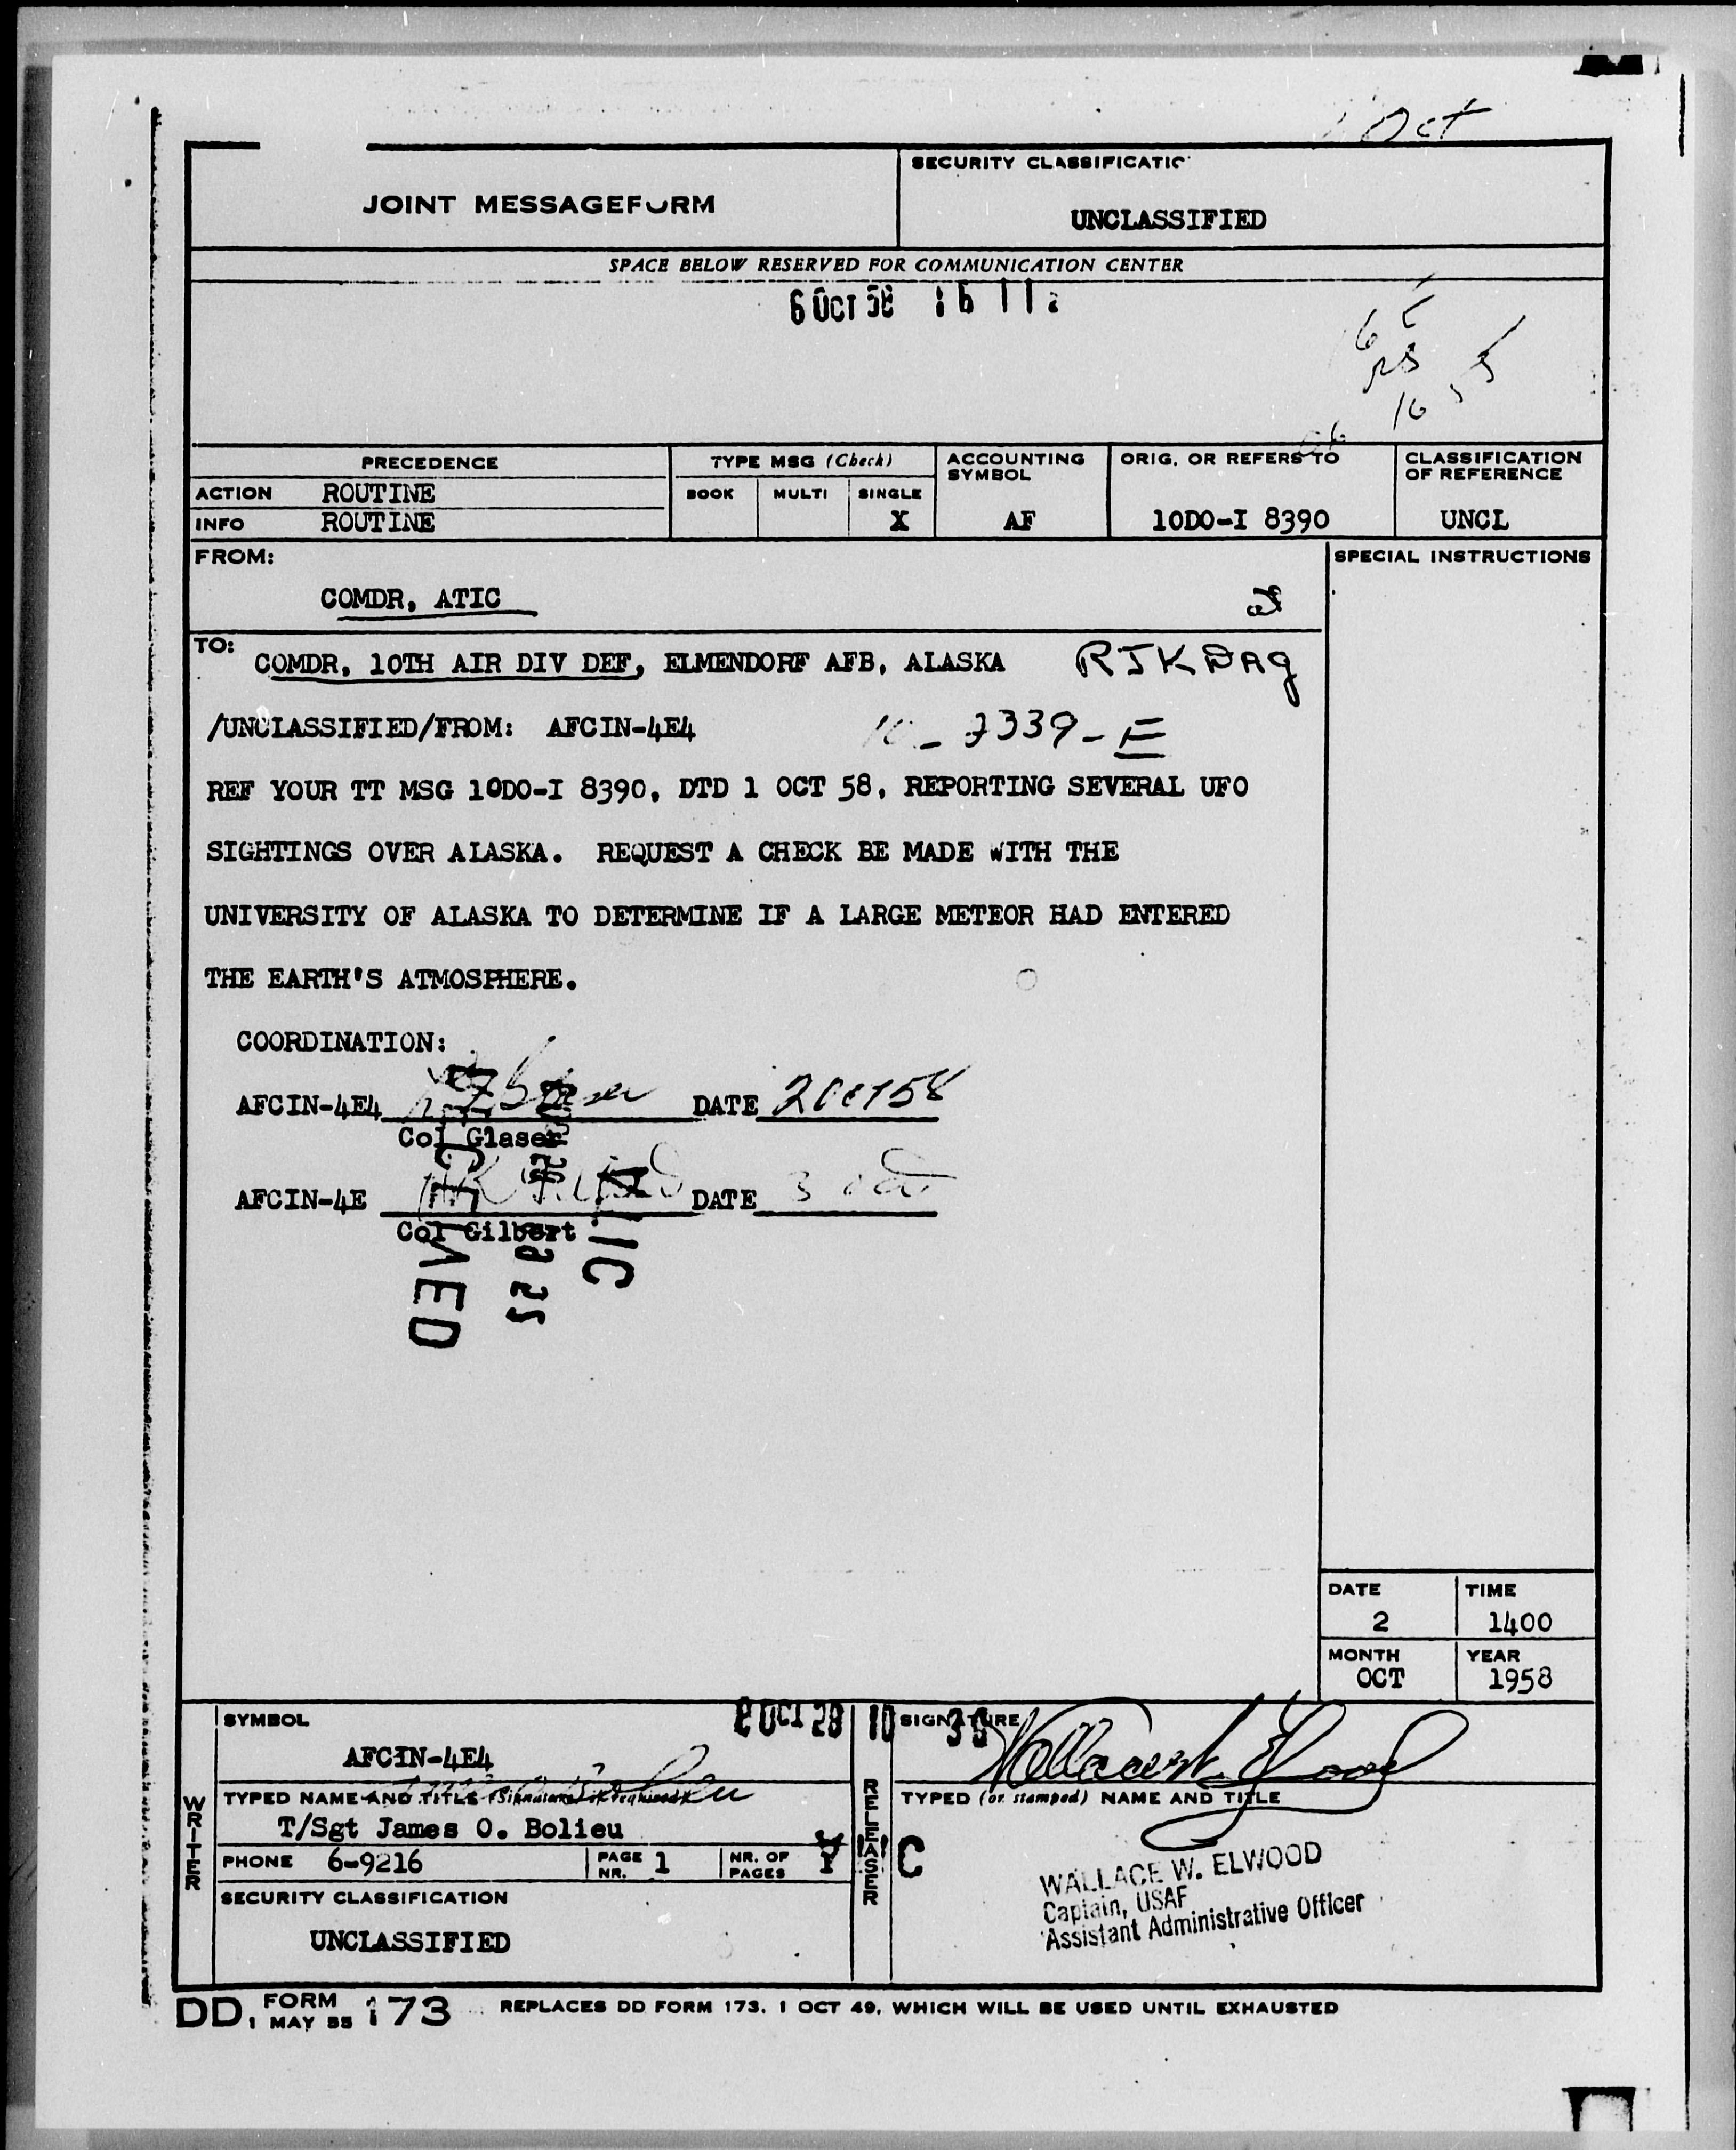 Oct
JOINT MESSAGEFORM
SECURITY CLASSIFICATIO
UNCLASSIFIED
SPACE BELOW RESERVED FOR COMMUNICATION CENTER
6 OCT 58 16 11
16
PRECEDENCE
TYPE MSG (Check)
ACCOUNTING SYMBOL
ORIG. OR REFERS TO
CLASSIFICATION OF REFERENCE
ACTION ROUTINE
BOOK MULTI SINGLE
INFO ROUTINE
X AF 10DO-I 8390 UNCL
FROM:
COMDR, ATIC
SPECIAL INSTRUCTIONS
TO:
COMDR, 10TH AIR DIV DEF, ELMENDORF AFB, ALASKA RJKDAG
/UNCLASSIFIED/FROM: AFCIN-4E4 - 7339-E
REF YOUR TT MSG 10DO-I 8390, DTD 1 OCT 58, REPORTING SEVERAL UFO
SIGHTINGS OVER ALASKA. REQUEST A CHECK BE MADE WITH THE
UNIVERSITY OF ALASKA TO DETERMINE IF A LARGE METEOR HAD ENTERED
THE EARTH'S ATMOSPHERE.
COORDINATION:
AFCIN-4E4 DATE 2 Oct 58
Col Glaser
AFCIN-4E DATE 3 Oct
Col Gilbert
DATE
2
TIME
1400
MONTH
OCT
YEAR
1958
WRITER
SYMBOL
AFCIN-4E4
TYPED NAME AND TITLE (Signature, if required)
T/Sgt James O. Bolieu
PHONE 6-9216
PAGE NR. 1
NR. OF PAGES 1
SECURITY CLASSIFICATION
UNCLASSIFIED
RELEASER
SIGNATURE
Wallace W. Elwood
TYPED (or stamped) NAME AND TITLE
WALLACE W. ELWOOD
Captain, USAF
Assistant Administrative Officer
DD FORM 1 MAY 55 173 REPLACES DD FORM 173, 1 OCT 49, WHICH WILL BE USED UNTIL EXHAUSTED